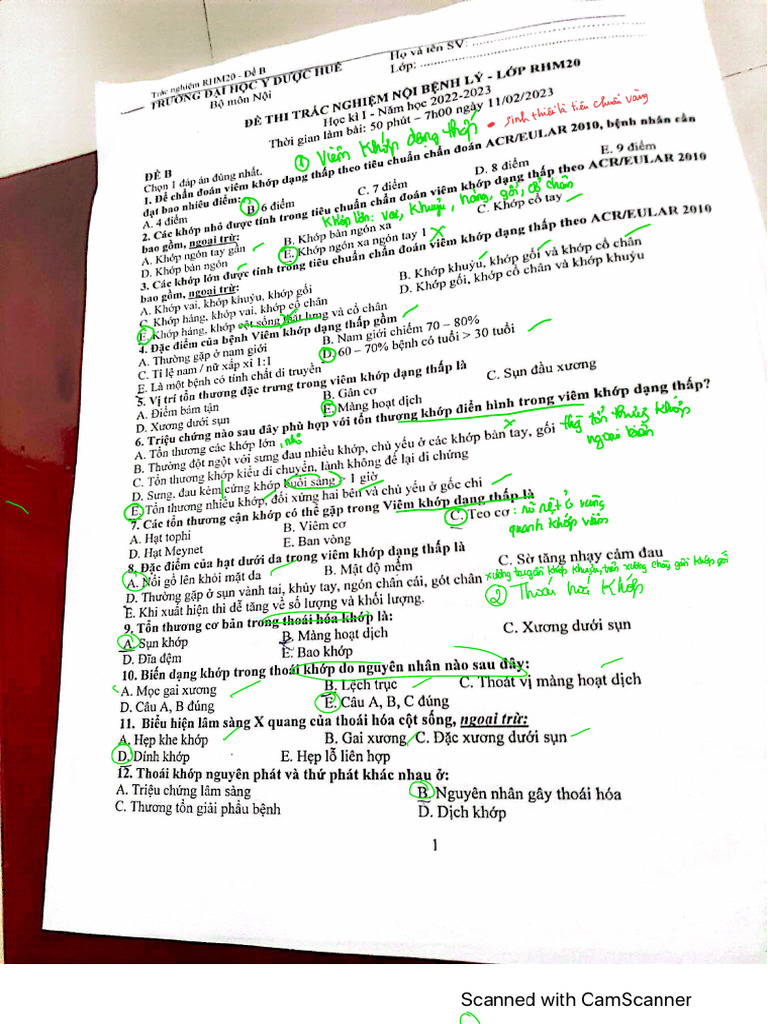 Trắc nghiệm RHM20 - Đề B
TRƯỜNG ĐẠI HỌC Y DƯỢC HUẾ
Bộ môn Nội
Họ và tên SV:
Lớp:
ĐỀ THI TRẮC NGHIỆM NỘI BỆNH LÝ - LỚP RHM20
Học kì I - Năm học 2022-2023
Thời gian làm bài: 50 phút – 7h00 ngày 11/02/2023
① Viêm khớp dạng thấp • sinh thiết là tiêu chuẩn vàng
ĐỀ B
Chọn 1 đáp án đúng nhất.
1. Để chẩn đoán viêm khớp dạng thấp theo tiêu chuẩn chẩn đoán ACR/EULAR 2010, bệnh nhân cần
đạt bao nhiêu điểm:
A. 4 điểm B. 6 điểm C. 7 điểm D. 8 điểm E. 9 điểm
2. Các khớp nhỏ được tính trong tiêu chuẩn chẩn đoán viêm khớp dạng thấp theo ACR/EULAR 2010
bao gồm, ngoại trừ:
Khớp lớn: vai, khuỷu, háng, gối, cổ chân
A. Khớp ngón tay gần B. Khớp bàn ngón xa C. Khớp cổ tay
D. Khớp bàn ngón E. Khớp ngón xa ngón tay 1
3. Các khớp lớn được tính trong tiêu chuẩn chẩn đoán viêm khớp dạng thấp theo ACR/EULAR 2010
bao gồm, ngoại trừ:
A. Khớp vai, khớp khuỷu, khớp gối B. Khớp khuỷu, khớp gối và khớp cổ chân
C. Khớp háng, khớp vai, khớp cổ chân D. Khớp gối, khớp cổ chân và khớp khuỷu
E. Khớp háng, khớp cột sống thắt lưng và cổ chân
4. Đặc điểm của bệnh Viêm khớp dạng thấp gồm
A. Thường gặp ở nam giới B. Nam giới chiếm 70 – 80%
C. Tỉ lệ nam / nữ xấp xỉ 1:1 D. 60 – 70% bệnh có tuổi > 30 tuổi
E. Là một bệnh có tính chất di truyền
5. Vị trí tổn thương đặc trưng trong viêm khớp dạng thấp là
A. Điểm bám tận B. Gân cơ C. Sụn đầu xương
D. Xương dưới sụn E. Màng hoạt dịch
6. Triệu chứng nào sau đây phù hợp với tổn thương khớp điển hình trong viêm khớp dạng thấp?
A. Tổn thương các khớp lớn nhỏ
B. Thường đột ngột với sưng đau nhiều khớp, chủ yếu ở các khớp bàn tay, gối
C. Tổn thương khớp kiểu di chuyển, lành không để lại di chứng
D. Sưng, đau kèm cứng khớp buổi sáng > 1 giờ
E. Tổn thương nhiều khớp, đối xứng hai bên và chủ yếu ở gốc chi
khớp
ngoại biên
7. Các tổn thương cận khớp có thể gặp trong Viêm khớp dạng thấp là
A. Hạt tophi B. Viêm cơ C. Teo cơ : rõ rệt ở vùng
quanh khớp viêm
D. Hạt Meynet E. Ban vòng
8. Đặc điểm của hạt dưới da trong viêm khớp dạng thấp là
A. Nổi gồ lên khỏi mặt da B. Mật độ mềm C. Sờ tăng nhạy cảm đau
D. Thường gặp ở sụn vành tai, khủy tay, ngón chân cái, gót chân
E. Khi xuất hiện thì dễ tăng về số lượng và khối lượng.
② Thoái hóa khớp
9. Tổn thương cơ bản trong thoái hóa khớp là:
A. Sụn khớp B. Màng hoạt dịch C. Xương dưới sụn
D. Đĩa đệm E. Bao khớp
10. Biến dạng khớp trong thoái khớp do nguyên nhân nào sau đây:
A. Mọc gai xương B. Lệch trục C. Thoát vị màng hoạt dịch
D. Câu A, B đúng E. Câu A, B, C đúng
11. Biểu hiện lâm sàng X quang của thoái hóa cột sống, ngoại trừ:
A. Hẹp khe khớp B. Gai xương C. Đặc xương dưới sụn
D. Dính khớp E. Hẹp lỗ liên hợp
12. Thoái khớp nguyên phát và thứ phát khác nhau ở:
A. Triệu chứng lâm sàng B. Nguyên nhân gây thoái hóa
C. Thương tổn giải phẩu bệnh D. Dịch khớp
1
Scanned with CamScanner